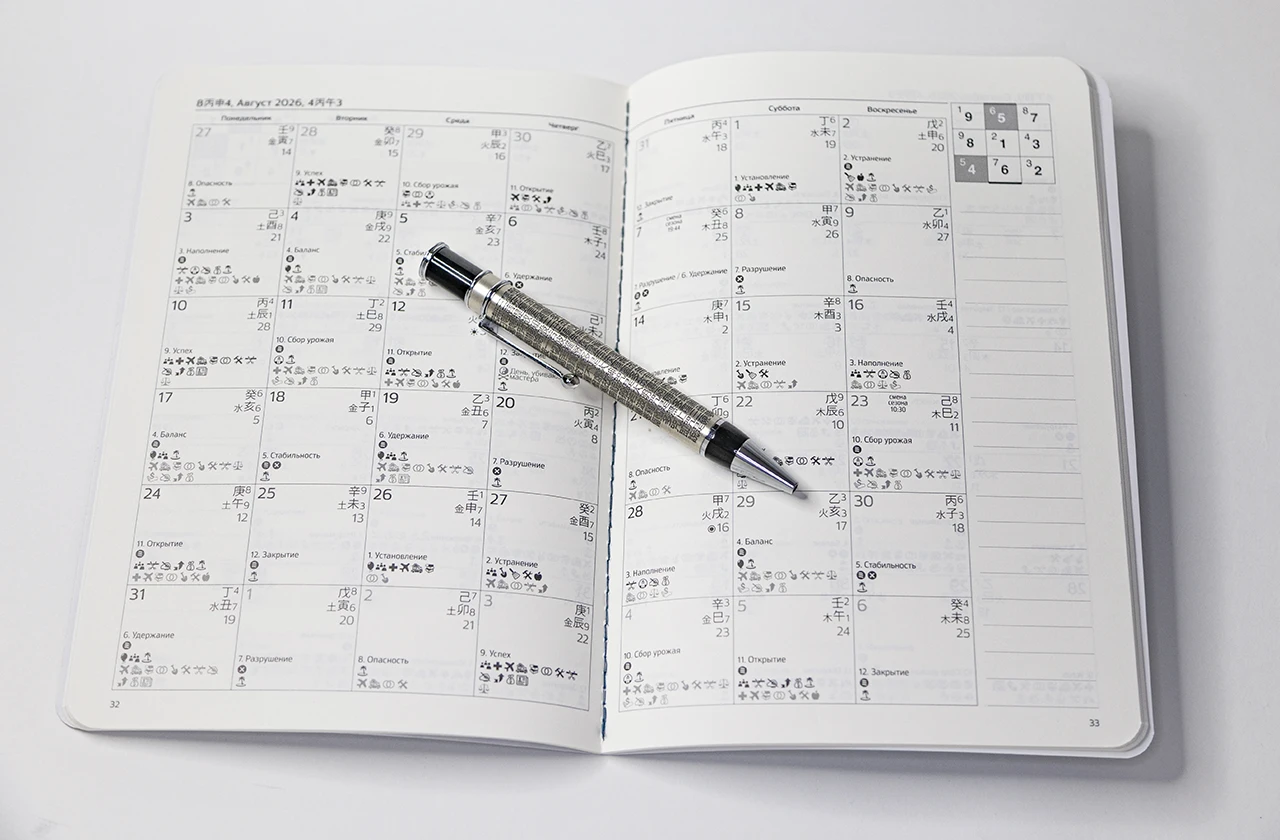 8丙申4, Август 2026, 4丙午3
Понедельник Вторник Среда Четверг
27 壬9
金寅7
14
8. Опасность
28 癸8
金卯7
15
9. Успех
29 甲3
火辰2
16
10. Сбор урожая
30 乙7
火巳3
17
11. Открытие
3 己3
土酉8
21
3. Наполнение
4 庚9
金戌9
22
4. Баланс
5 辛7
金亥7
23
6 壬8
木子1
24
6. Удержание
10 丙4
土辰1
28
9. Успех
11 丁2
土巳8
29
10. Сбор урожая
12
11. Открытие
己1
День, убива
мастера
17 癸6
水亥6
5
4. Баланс
18 甲1
金子1
6
5. Стабильность
19 乙3
金丑6
7
6. Удержание
20 丙2
火寅4
8
7. Разрушение
24 庚8
土午9
12
11. Открытие
25 辛9
土未3
13
12. Закрытие
26 壬1
金申7
14
1. Установление
27 癸2
金酉7
15
2. Устранение
31 丁4
水丑7
19
6. Удержание
1 戊8
土寅6
20
7. Разрушение
2 己7
土卯8
21
8. Опасность
3 庚1
金辰9
22
9. Успех
32
Пятница Суббота Воскресенье
31 丙4
水午3
18
12. Закрытие
1 丁6
水未7
19
1. Установление
2 戊2
土申6
20
2. Устранение
7 смена
сезона
19:44
癸6
木丑8
25
7. Разрушение / 6. Удержание
8 甲7
水寅9
26
7. Разрушение
9 乙1
水卯4
27
8. Опасность
14 庚7
木申1
2
15 辛8
木酉3
3
2. Устранение
16 壬4
水戌4
4
3. Наполнение
丁6
卯9
8. Опасность
22 戊9
木辰6
10
23 смена
сезона
10:30
己8
木巳2
11
10. Сбор урожая
28 甲7
火戌2
16
3. Наполнение
29 乙3
火亥3
17
4. Баланс
30 丙6
水子3
18
5. Стабильность
4 辛3
金巳7
23
10. Сбор урожая
5 壬2
木午1
24
11. Открытие
6 癸4
木未8
25
12. Закрытие
1 9 6 5 8 7
9 8 2 1 4 3
5 4 7 6 3 2
33